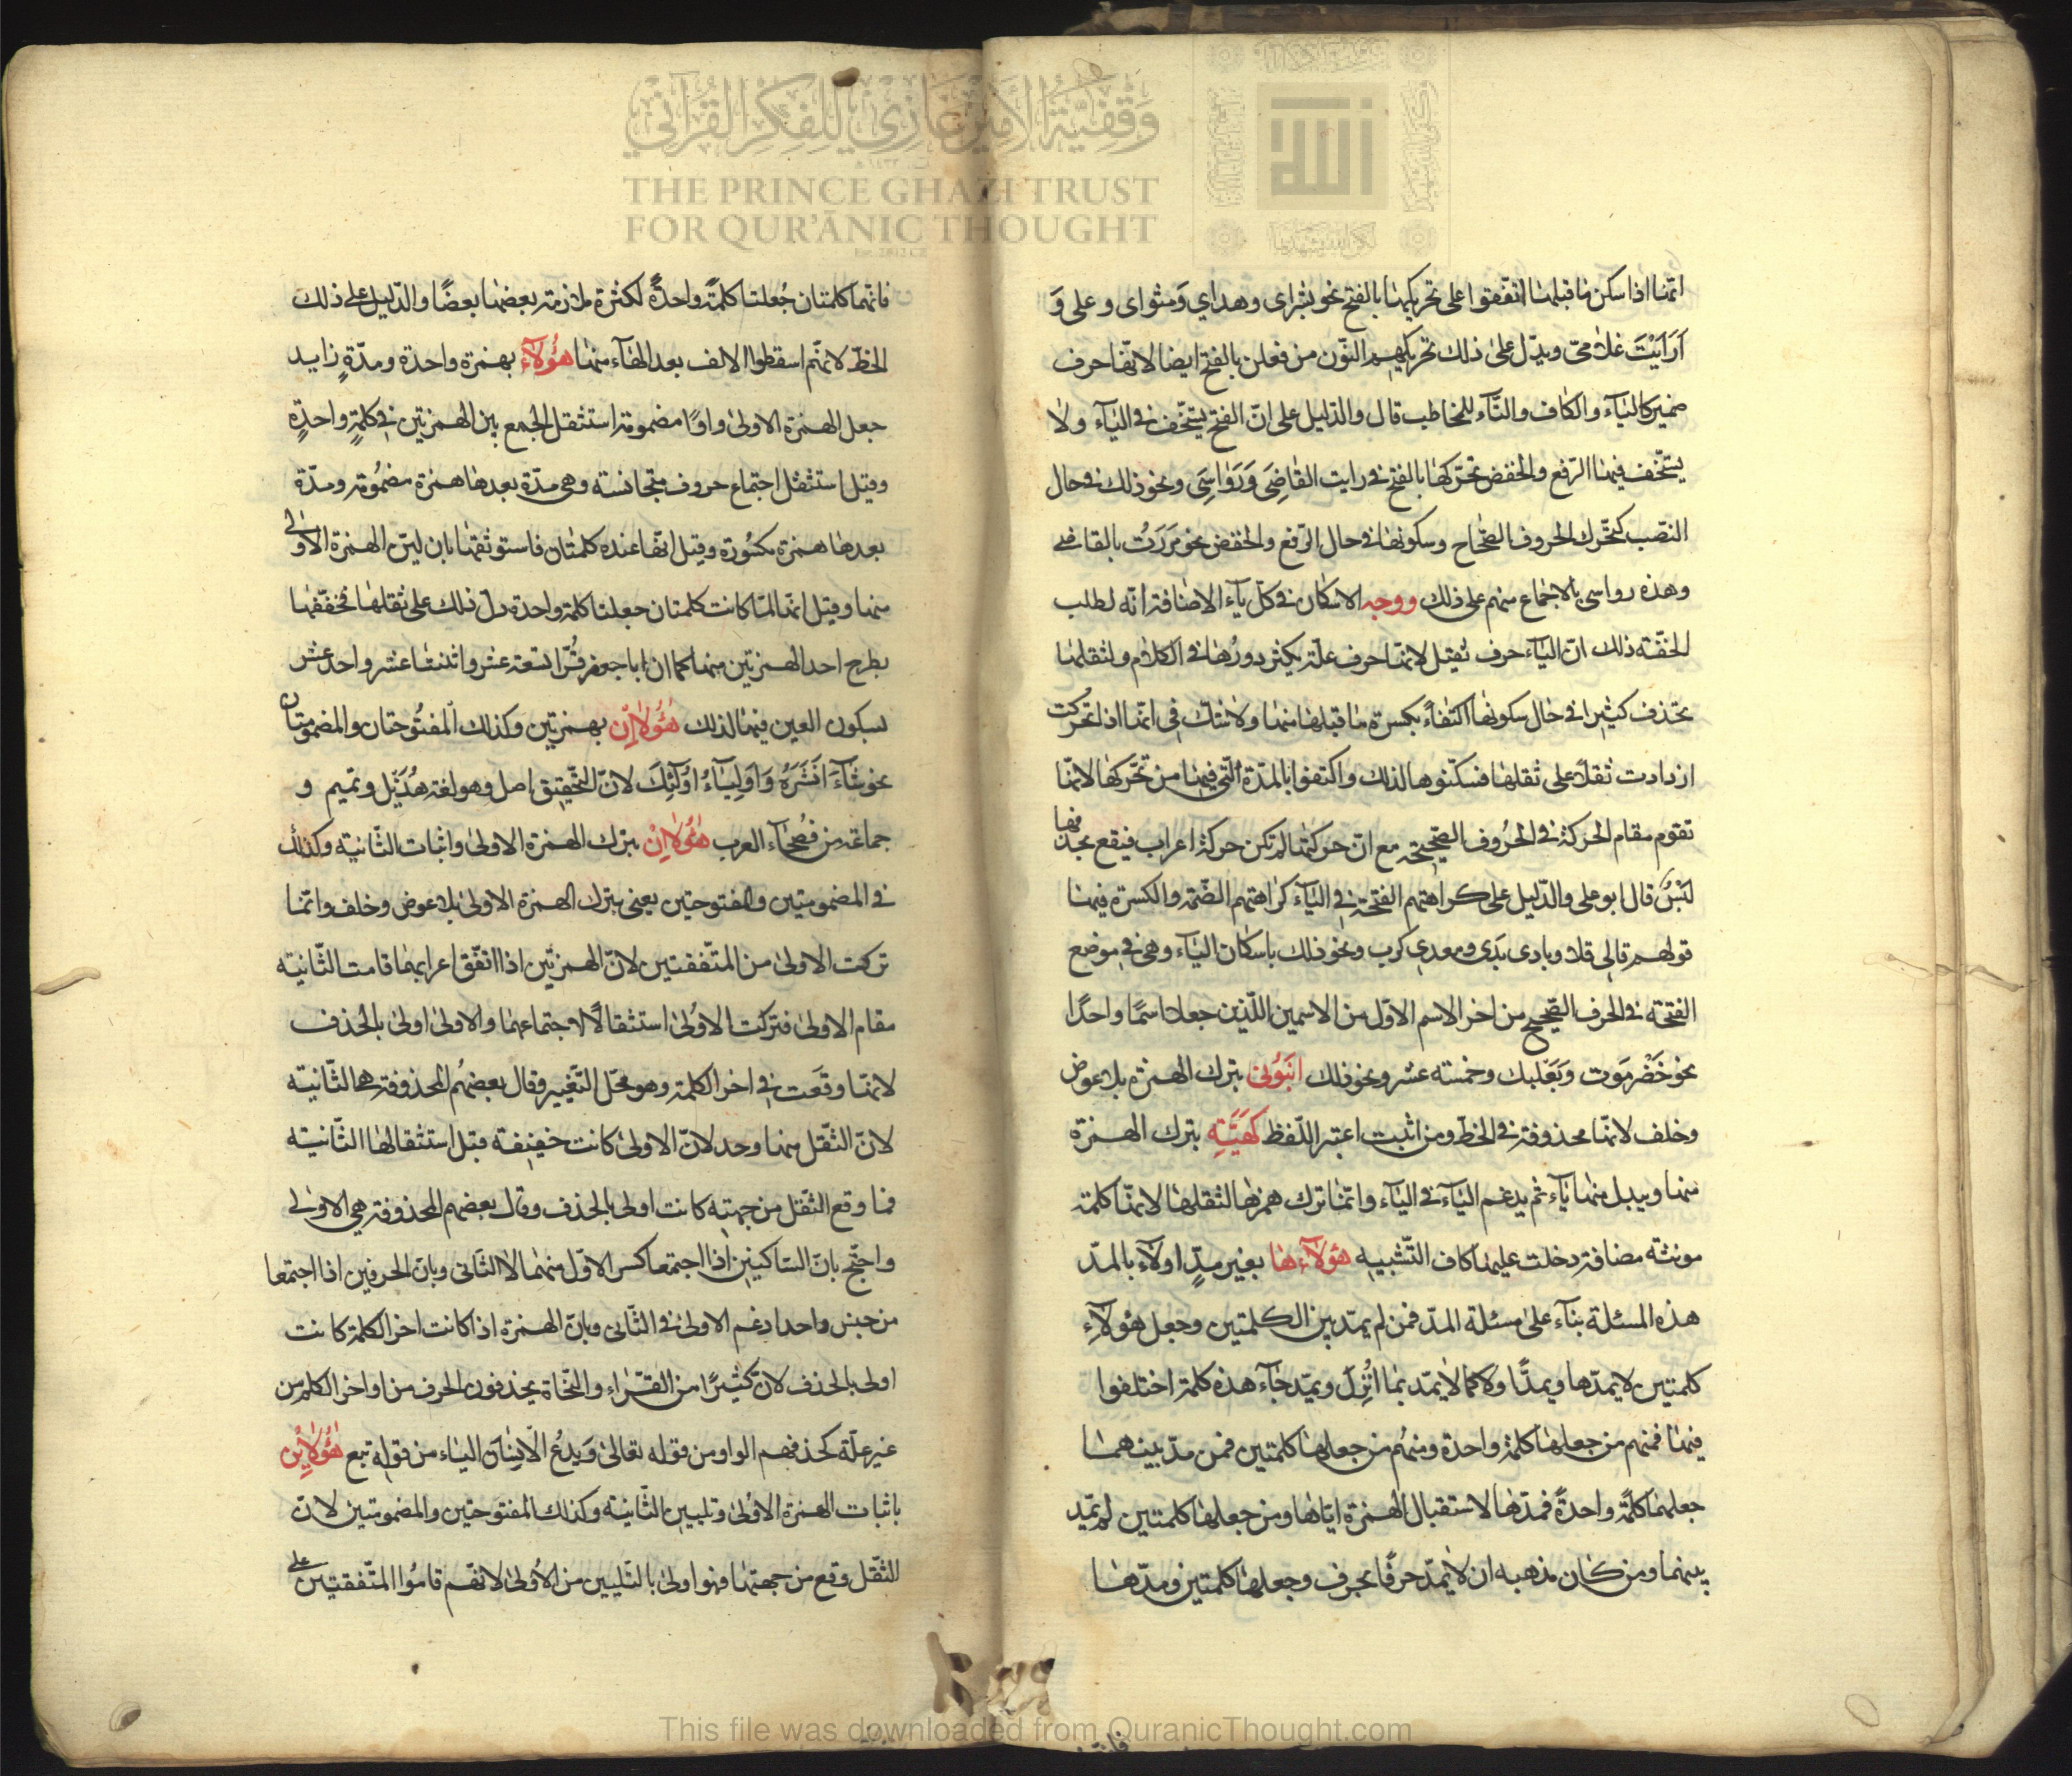 وقفية الأمير غازي للفكر القرآني
THE PRINCE GHAZI TRUST
FOR QUR'ĀNIC THOUGHT
انها اذا سكن ما قبلها اتفقوا على تحريكها بالفتح نحو بشراى وهداي ومثواى وعلى وَ
اَرَاَيْتَ غلامىّ ويدّل علىٰ ذلك تحريكهم النّون من فعلن بالفتح ايضا لانّها حرف
ضمير كاليآء والكاف والتّآء للمخاطب قال والدّليل على انّ الفتح يستخّف فى اليآء ولا
يستخّف فيها الرّفع والخفض تحرّكها بالفتح فى رايت القاضِىَ وَرَواسِىَ ونحو ذلك فى حال
النّصب كتحّرك الحروف الصّحاح وسكونها فى حال الرّفع والخفض نحو مَرَرْتُ بالقاضى
وهذه رواسى بالاجماع منهم على ذلك ووجه الاسكان فى كلّ يآء الاضافة انّه لطلب
الخفّة ذلك انّ اليآء حرف ثقيل لانها حرف علّة يكثر دورُها فى الكلام ولثقلها
تحّذف كثيرا فى حال سكونها اكتفآءً بكسرة ما قبلها منها ولا شكّ فى انّها اذا تحركت
ازدادت ثقلًا على ثقلها فسكّنوها لذلك واكتفوا بالمدّة الّتى فيها من تحّركها لانّها
تقوم مقام الحركة فى الحُروف الصّحيحة مع انّ حركتها لم تكن حركة اعراب فيقع بحذفها
لَبْسٌ قال ابو على والدّليل على كراهتهم الفتحة فى اليآء كراهتهم الضّمة والكسرة فيها
قولهم قالى قلا وبادى بَدَى ومعدى كرب ونحو ذلك باسكان اليآء وهى فى موضع
الفتحة فى الحرف الصّحيح من اخر الاسم الاوّل من الاسمين اللّذين جعلا اسمًا واحدًا
نحو حَضْرمَوت وَبَعَلبك وخمسة عشر ونحو ذلك انبؤنى بترك الهمزة بلا عوض
وخلف لانّها محذوفة فى الخطّ ومن اثبت اعتبر اللّفظ كَهَيَّةِ بترك الهمزة
منها ويبدل منها يآء ثم يدغم اليآء فى اليآء وانّما ترك همزها لثقلها لانّها كلمة
مونثة مضافة دخلت عليها كاف التّشبيه هؤلآء ها بغير مدٍّ اولآء بالمدّ
هذه المسئلة بنآء علىٰ مسئلة المدّ فمن لم يمّد بين الكلمتين وجعل هؤلآءِ
كلمتين لا يمدّها ويمدّ اولا كما لا يمّد بما اُنْزِلَ ويمّد جآء هذه كلمة اختلفوا
فيها فمنهم من جعلها كلمةً واحدة ومنهُم من جعلها كلمتين فمن مدّ بينهما
جعلها كلمًة واحدةً فمدّها لاستقبال الهمزة ايّاها ومن جعلها كلمتين لم يمّد
بينهما ومن كان مذهبه ان لا يمّد حرفًا بحرف وجعلها كلمتين ومدّها
فانّهما كلمتان جُعلتا كلمةً واحدًة لكثرة ملازمة بعضها بعضًا والدّليل على ذلك
الخطّ لانّهم اسقطوا الالف بعد الهآء منها هؤلآء بهمزة واحدة ومدّةٍ زايد
جعل الهمزة الاولىٰ واوًا مضمومة استثقل الجمع بين الهمزتين فى كلمةٍ واحدٍة
وقيل استثقل اجتماع حروف متجانسة وهى مدّة بعدها همزة مضمُومة ومدّة
بعدها همزة مكسُورة وقيل انّها عنده كلمتان فاستوثقها بان ليّن الهمزة الاولى
منها وقيل انّها لمّا كانت كلمتان جعلتا كلمة واحدة دلّ ذلك على ثقلها فخفّفها
بطرح احد الهمزتين منها كما ان ابا جعفر قرُّا تسعة عشر واثنتا عشر واحد عشر
بسكون العين فيها لذلك هٰؤُلآٰاِنْ بهمزتين وكذلك المفتُوحتان والمضمومتان
نحو شآءَ اَنْشَرَهُ وَاَولِيَآءُ اُولٰئِكَ لانّ التّحقيق اصل وهو لغة هُذَيْل وتميم و
جماعة من فُصَحٰآء العرب هٰؤُلاٰاِنْ بترك الهمزة الاولىٰ واثبات الثّانية وكذلك
فى المضمومتين والمفتوحتين يعنى بترك الهمزة الاولىٰ بلا عوض وخلف وانّما
تركت الاولىٰ من المتّفقتين لانّ الهمزتين اذا اتفّق اعرابهما قامت الثّانية
مقام الاولىٰ فتركت الاوُلىٰ استثقالًا لاجتماعهما والاولىٰ اولىٰ بالحذف
لانّها وقعَت فى اخر الكلمة وهو محّل التّغيير وقال بعضُهم المحذوفة هى الثّانية
لانّ الثّقل منها وحد لانّ الاولىٰ كانت خفيفة قبل استثقالها الثّانية
فما وقع الثّقل من جهته كانت اولى بالحذف وقال بعضهم المحذوفة هى الاولى
واحتّج بانّ السّاكنين اذا اجتمعا كسر الاوّل منهما لا الثّانى وبانّ الحرفين اذا اجتمعا
من جنس واحد ادغم الاولىٰ فى الثّانى وبانّ الهمزة اذا كانت اخر الكلمة كانت
اولى بالحذف لانّ كثيرًا من القرّاء والنّحاة يحذفون الحرف من اواخر الكلم من
غير علّة كحذفهم الواو من قوله تعالىٰ وَيَدْعُ الْاِنْسٰانُ الياء من قوله نبع هٰؤُلاٰيِنْ
باثبات الهمزة الاوُلىٰ وتليين الثّانية وكذلك المفتوحتين والمضمومتين لانّ
الثّقل وقع من جهتها فهو اولىٰ بالتّليين من الاُولىٰ لانّهم قامُوا المتّفقتين على
This file was downloaded from QuranicThought.com